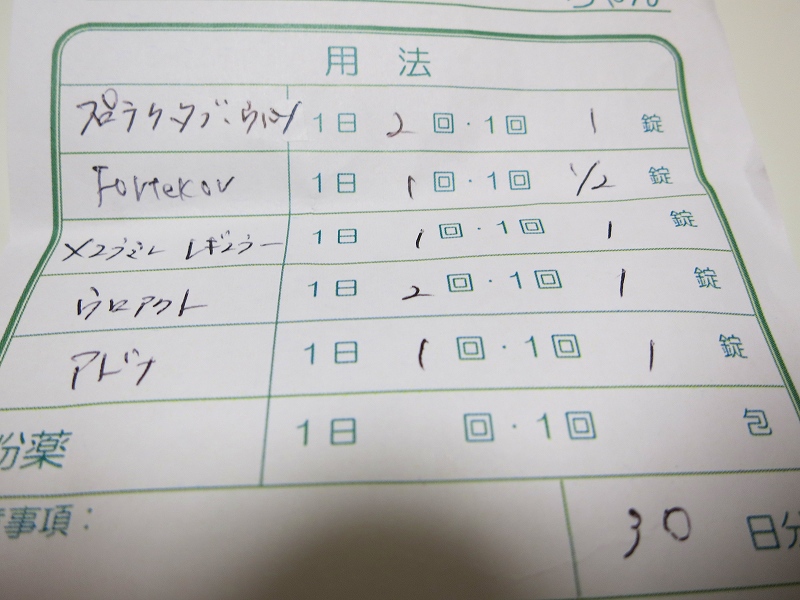 用法
プロラクタブ・ウロハツ 1日 2 回・1回 1 錠
Fortekor 1日 1 回・1回 1/2 錠
メニぅミン レギュラー 1日 1 回・1回 1 錠
ウロアクト 1日 2 回・1回 1 錠
アドナ 1日 1 回・1回 1 錠
粉薬 1日 回・1回 包
事項：
30 日分